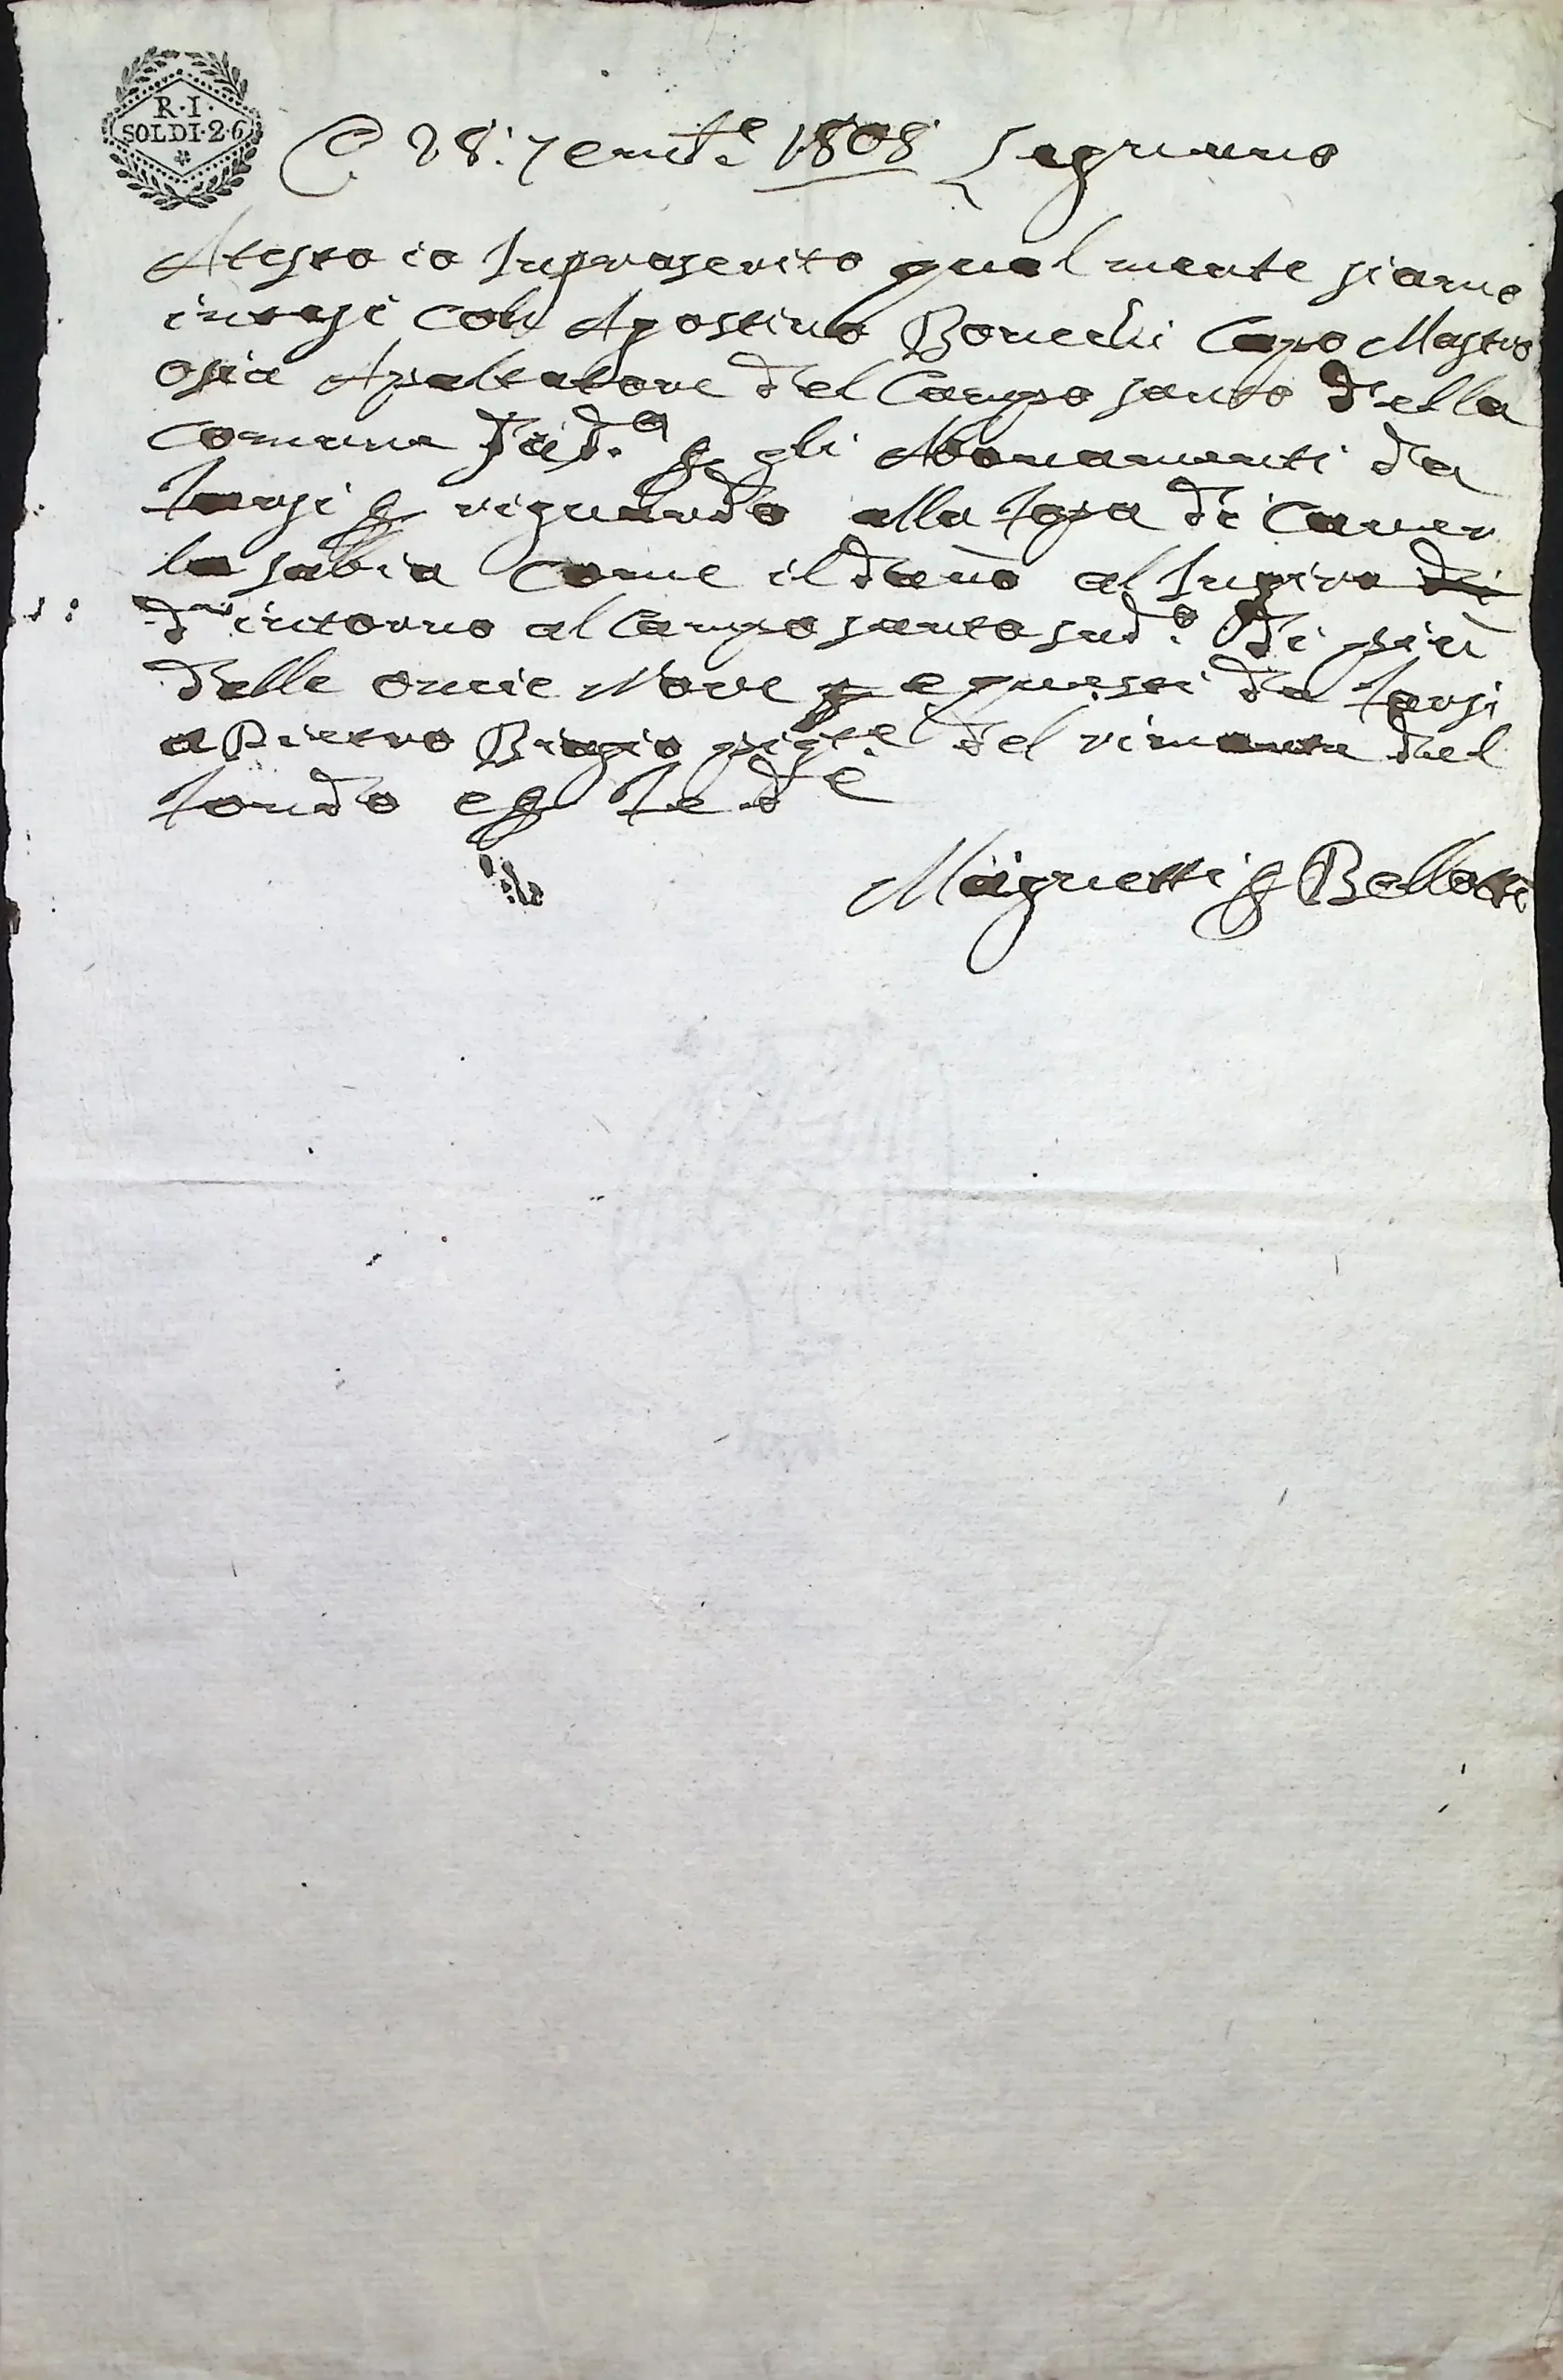 R·I·
SOLDI·2·6
28: 7embr.e 1808 Legnano
Atesto io Inprascrito qualmente siamo
intesi con Agostino Bonecchi Capo Mastro
osia Apaltatore del Campo santo della
Comune Sud.a per gli Abonamenti da
farsi per riguardo alla fopa di Caver
la sabia Come il dano al Ingiro di
d'intorno al Campo santo sud.o di più
delle oncie Nove e questi da farsi
a Pietro Biagio pig.te del rimanente del
fondo e per fede
Magnetti per Bellotti